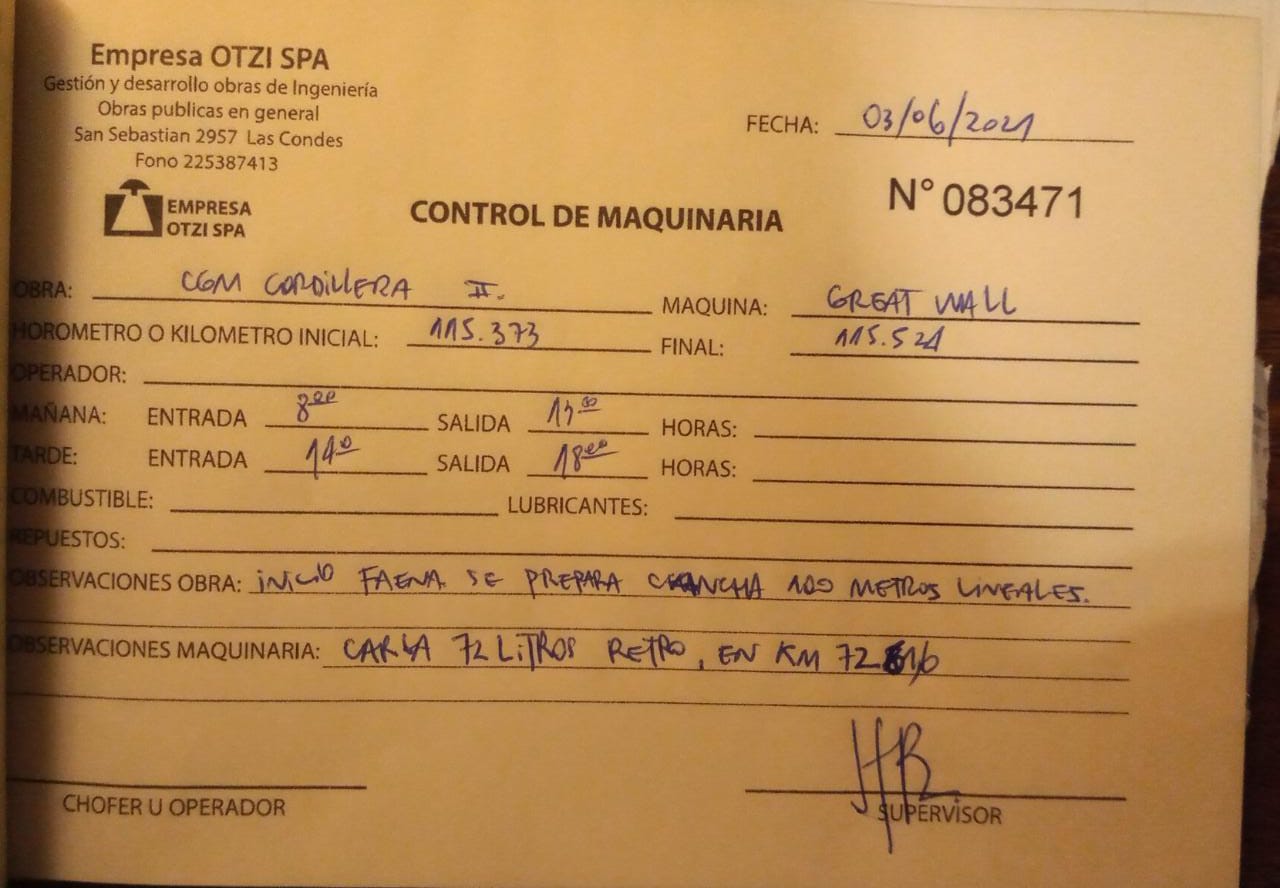 Empresa OTZI SPA
Gestión y desarrollo obras de Ingeniería
Obras publicas en general
San Sebastian 2957 Las Condes
Fono 225387413
FECHA: 03/06/2021
EMPRESA
OTZI SPA
CONTROL DE MAQUINARIA
N° 083471
OBRA: CGM CORDILLERA II. MAQUINA: GREAT WALL
HOROMETRO O KILOMETRO INICIAL: 115.373 FINAL: 115.521
OPERADOR:
MAÑANA: ENTRADA 8⁰⁰ SALIDA HORAS:
TARDE: ENTRADA 14⁰ SALIDA 18⁰⁰ HORAS:
COMBUSTIBLE: LUBRICANTES:
REPUESTOS:
OBSERVACIONES OBRA: INICIO FAENA. SE PREPARA CANCHA 100 METROS LINEALES.
OBSERVACIONES MAQUINARIA: CARGA 72 LITROS RETRO, EN KM
CHOFER U OPERADOR
HB
SUPERVISOR